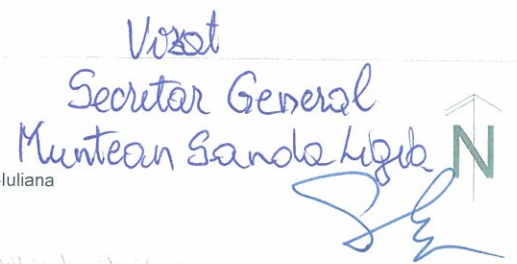 Vizat
Secretar General
Muntean Sanda Ligia
N
-Iuliana